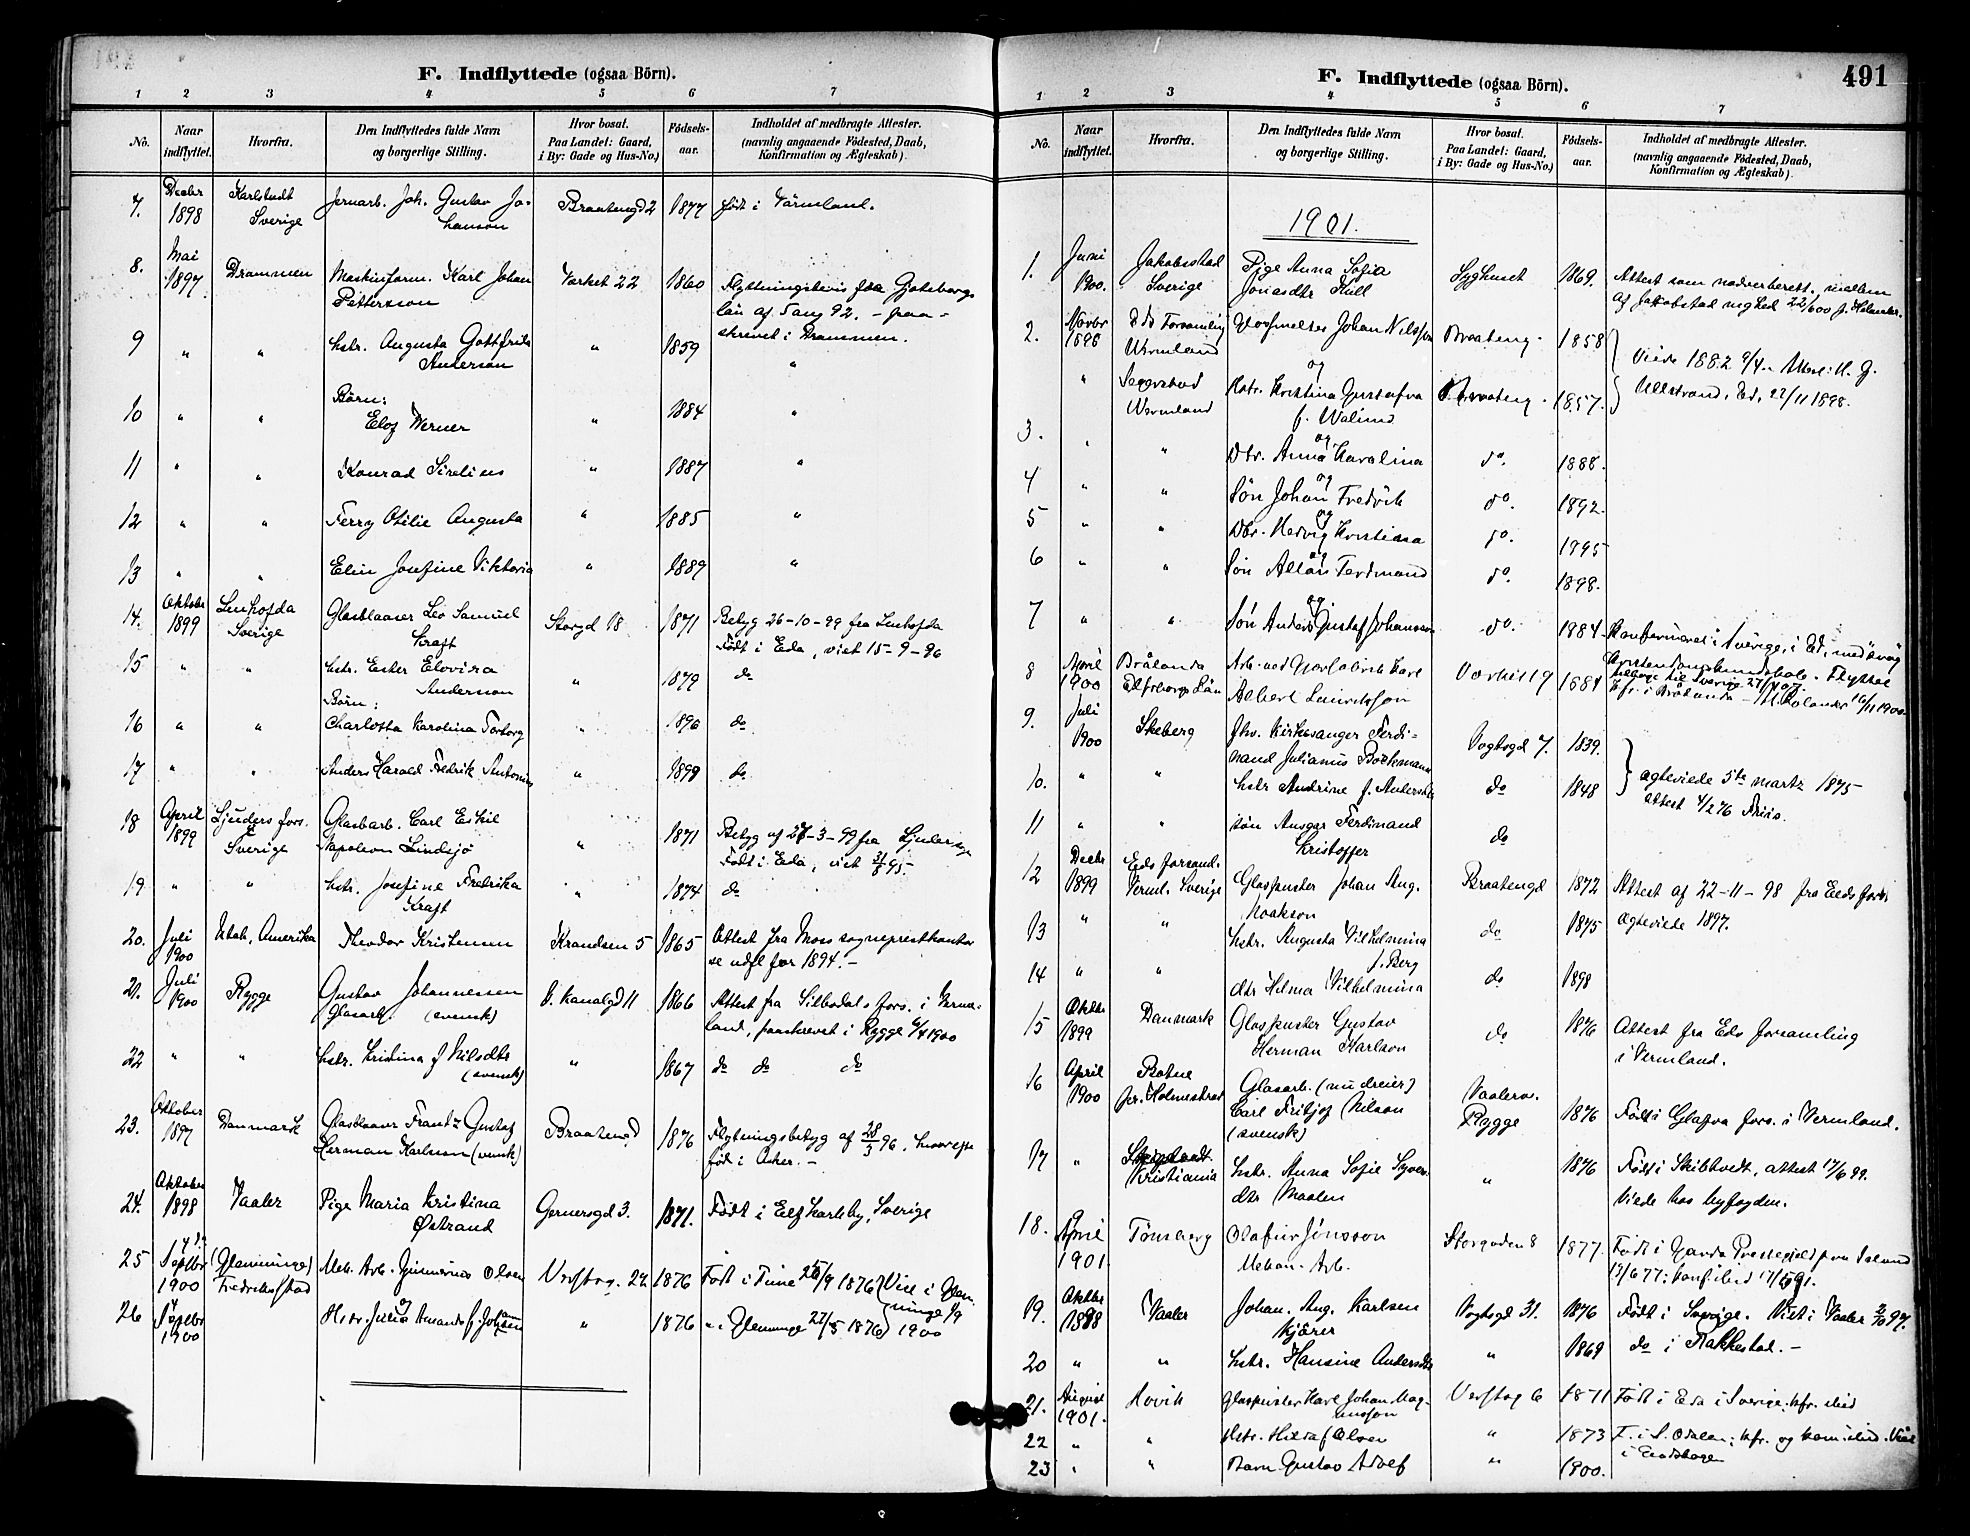 F. Indflyttede (ogsaa Börn).
1 2 3 4 5 6 7
No. Naar indflyttet. Hvorfra. Den Indflyttedes fulde Navn og borgerlige Stilling. Hvor bosat. Paa Landet: Gaard, i By: Gade og Hus-No.) Födsels-aar. Indholdet af medbragte Attester. (navnlig angaaende Födested, Daab, Konfirmation og Ægteskab).
7. Decbr 1898 Karlstadt Sverige Jernarb. Joh. Gustav Johanson Braatengd 2 1877 født i Värmland.
8. Mai 1897 Drammen Maskinform. Karl Johan Pettersson Værket 22 1860 Flytningsbevis fra Gøteborgs län af 5 aug 92. - paaskrevet i Drammen.
9 " " hstr. Augusta Gottfrida Anderson " 1859 "
Børn:
10 " " Elof Werner " 1884 "
11 " " Konrad Sirelius " 1887 "
12 " " Ferry Otilie Augusta " 1885 "
13 " " Elin Josefine Viktoria " 1889 "
14. Oktober 1899 Lenhofda Sverige Glasblaaser Leo Samuel Kraft Storgd 18 1871 Betyg 26-10-99 fra Lenhofda Født i Eda, viet 15-9-96
15 " " hstr. Ester Elovira Anderson " 1879 do
Børn:
16 " " Charlotta Karolina " 1896 do
17 " " Anders Harald Fredrik Antonius " 1899 do
18 April 1899 Ljuders fors. Sverige Glasarb. Carl Eskil Napoleon Lindsjö " 1871 Betyg af 27-3-99 fra Født i Eda, viet
19 " " hstr. Josefine Fredrika Kraft " 1874 do
20. Juli 1900 Utah, Amerika Theodor Kristensen Krandsen 5 1865 Attest fra Moss sogneprestkontor se udfl for 1894. -
21. Juli 1900 Rygge Gustav Johannessen Glasarb. (svensk) Kanalgd 11 1866 Attest fra Silbodals fors. i Vermeland, paaskrevet i Rygge 1900
22 " " hstr. Kristina f Nilsdtr (svensk) " 1867 do do do
23. Oktober 1897 Danmark Glasblaaser Frantz Gustaf Herman Karlsson (svensk) Braatengd 1876 Flytningsbetyg af 28/3 96. hvorefter fød i -
24. Oktober 1898 Vaaler Pige Maria Kristina Østrand Gernersgd 3. 1871. Født i Elfkarleby, Sverige
25 Septbr 1900 (Glemminge) Fredriksstad Mek. Arb. Olsen 22 1876 Født i Tune 1876 Viet i Glemminge
26 Septbr 1900 Hstr. Julia Amanda f. Johansen " 1876 " i Glemminge 27/5 1876 1900

F. Indflyttede (ogsaa Börn).
491
1 2 3 4 5 6 7
No. Naar indflyttet. Hvorfra. Den Indflyttedes fulde Navn og borgerlige Stilling. Hvor bosat. Paa Landet: Gaard, i By: Gade og Hus-No.) Födsels-aar. Indholdet af medbragte Attester. (navnlig angaaende Födested, Daab, Konfirmation og Ægteskab).
1901.
1. Juni 1900. Jakobsstad Sverige Pige Anna Sofia Jonasdtr Kull Syghuset 1869. Attest som
2. Novbr 1898 Eds Forsamling Wermland Johan Nilsson Braateng. 1858 Viede 1882 9/4.
og
" Segerstad Wermland Hstr. Kristina Gustafva f. Walind Braateng. 1857. Ullstrand, Ed, 22/11 1898.
og
3. " " Dtr. Anna Karolina do. 1888.
og
4 " " Søn Johan Fredrik do. 1892.
og
5 " " Dtr. Hedvig Kristina do. 1895
og
6 " " Søn Allan Ferdinand do. 1898.
og
7 " " Søn Anders Gustaf Johansson do. 1884. Konfirmeret i Sverige, i Ed, med
8 April 1900 Brålanda Elfsborgs Län Arb. ved Karl Albert 19 1884 Kristendomskundskab. Flyttet tilbage til Sverige Kfr. i Brålanda 16/11 1900.
9. Juli 1900 Skeberg fhv. Kirkesanger Ferdinand Julianus Bockmann Vogtsgd 7. 1839.
10. " " hstr Andrine f. do 1848 ægteviede 5te martz 1875 attest
11 " " søn Ansgar Ferdinand Kristoffer do
12 Decbr 1899 Eds forsaml. Verml. Sverige Glaspuster Johan Aug. Noakson Braatengd 1872 Attest af 22-11-98 fra Eds fors.
13 " " hstr. Augusta Vilhelmina f. Berg do 1875 ægteviede 1897.
14 " " dtr Hilma Vilhelmina do 1898
15 Oktbr 1899 Danmark Glaspuster Gustav Herman Karlson do 1876 Attest fra Eds forsamling i Vermland.
16 April 1900 Botne pr. Holmestrand Glasarb. (nu dreier) Carl Fritjof Nilson (svensk) Rygge 1876 Født i Glafva fors. i Vermland.
17 " Kristiania hstr. Anna Sofie dtr Maalen " 1876 Født i Skibtvedt, attest 17/6 99. Viede hos byfogden.
18. April 1901. Tønsberg Olafur Jónsson Mekan. Arb. Storgaden 8 1877. Født i Garda Prestegjeld paa Island
19. Oktbr 1898 Vaaler Johan. Aug. Karlsen Kjører Vogtsgd 31. 1876 Født i Sverige. Viet i Vaaler 97.
20 " " hstr. Hansine Andersdtr " 1869 do i Rakkestad. -
21. August 1901. Høvik Glaspuster Karl Johan Magnusson 6 1871 Født i Eda i Sverige.
22 " " Hstr. Hilda f Olsen " 1873 F. i S. Odalen;
23 " " Barn Gustav Adolf " 1900.